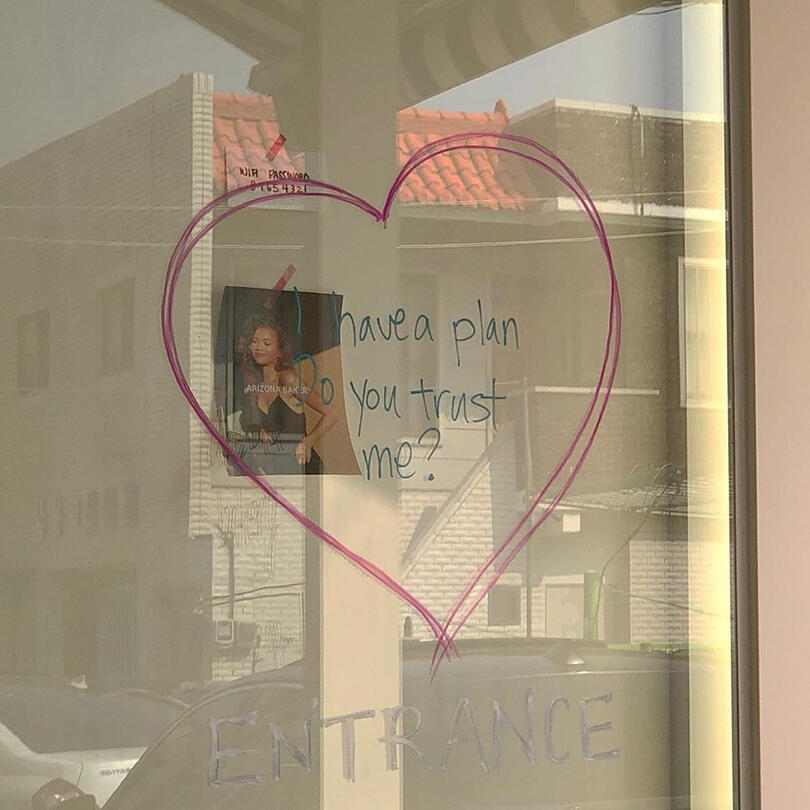 WIFI PASSWORD
87654321
I have a plan
Do you trust
me?
ARIZONA BAKERY
ENTRANCE